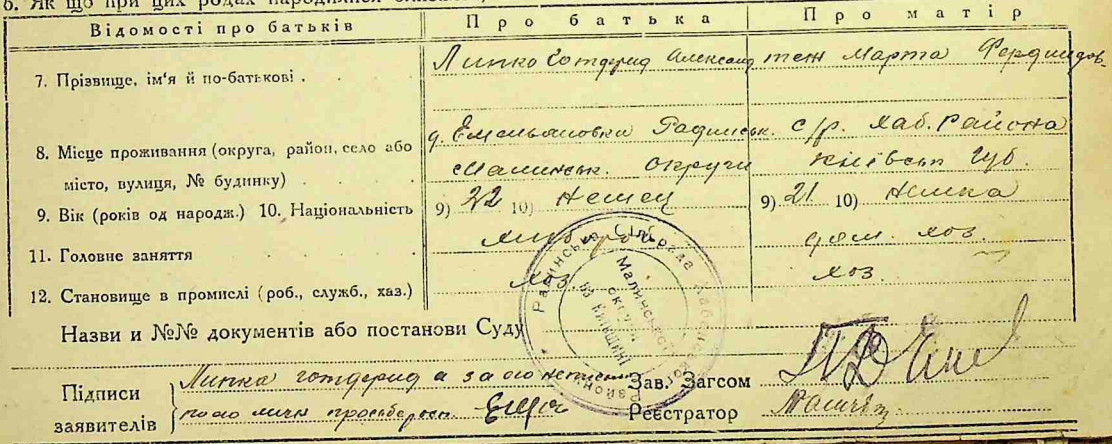 6. Як що при цих родах народилися близнята,
Відомості про батьків
Про батька
Про матір
7. Прізвище, ім'я й по-батькові .
Липко Готфрид Александ
теж Марта Фердинандов-
8. Місце проживання (округа, район, село або
місто, вулиця, № будинку)
д. Емельяновки Радинськ. с/р. Хаб. Района
Малинськ. округи Київськ губ.
9. Вік (років од народж.) 10. Національність
9) 22 10) Немец
9) 21 10) Немка
11. Головне заняття
хліб роб
дом. хоз.
12. Становище в промислі (роб., служб., хаз.)
хоз.
хоз.
Радинська Сільрада Хабенського району
Малинської округи на Київщині
Назви и №№ документів або постанови Суду
Підписи заявителів
Липка готфрид а за его
по его личн
Зав. Загсом
Реєстратор